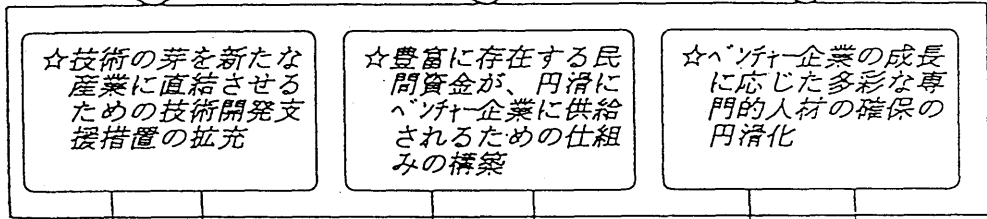 ☆技術の芽を新たな
産業に直結させる
ための技術開発支
援措置の拡充
☆豊富に存在する民
間資金が、円滑に
ﾍﾞﾝﾁｬｰ企業に供給
されるための仕組
みの構築
☆ﾍﾞﾝﾁｬｰ企業の成長
に応じた多彩な専
門的人材の確保の
円滑化